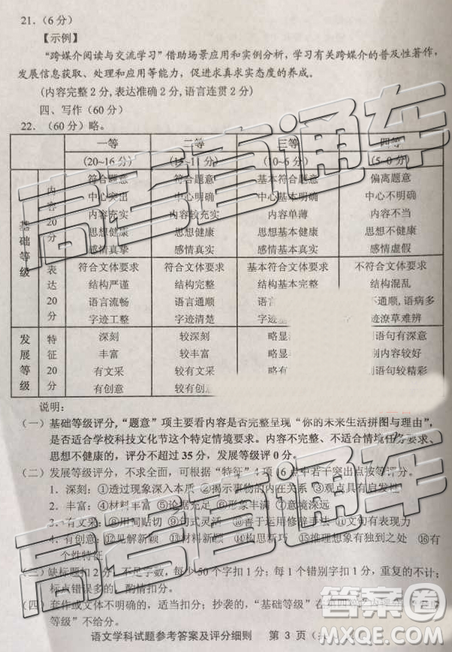 21.（6 分）
【示例】
“跨媒介阅读与交流学习”借助场景应用和实例分析，学习有关跨媒介的普及性著作，
发展信息获取、处理和应用等能力，促进求真求实态度的养成。
(内容完整 2 分, 表达准确 2 分, 语言连贯 2 分)
四、写作(60 分)
22.（60 分）略。
一等 二等 三等 四等
(20~16 分)
基础等级 内容 20分 符合题意 符合题意 基本符合题意 偏离题意
中心突出 中心明确 基本明确 中心不明确
内容充实 内容较充实 内容单薄 内容不当
思想健康 思想健康 思想基本健康
感情真挚 感情真实 感情基本真实 感情虚假
表达 20分 符合文体要求 符合文体要求 基本符合文体要求 不符合文体要求
结构严谨 结构完整 结构基本完整 结构混乱
语言流畅 语言通顺 语病多
字迹工整 字迹清楚 潦草难辨
发展等级 特征 20分 深刻 较深刻 略显 语句有深意
丰富 较丰富 略显 内容较好
有文采 较有文采 语句较精彩
有创意 较有创意
说明：
(一) 基础等级评分，“题意”项主要看内容是否完整呈现“你的未来生活拼图与理由”，
是否适合学校科技文化节这个特定情境要求。内容不完整、不适合情境任务要求、
思想不健康的，评分不超过 35 分，发展等级评 0 分。
(二) 发展等级评分，不求全面，可根据“特征”4 项 16 点中若干突出点按等评分。
1. 深刻：①透过现象深入本质 ②揭示事物的内在关系 ③观点具有启发性
2. 丰富：④材料丰富 ⑤论据充足 ⑥形象丰满 ⑦意境深远
3. 有文采：⑧用词贴切 ⑨文式灵活 ⑩善于运用修辞手法
有创意 见解新颖 材料新颖 构思新巧 推理想象有独到之处 ⑯有
个性特征
(三) 缺标题扣 2 分，不足字数，每少 50 个字扣 1 分；每 1 个错别字扣 1 分；
标点错误多的，酌情扣分。
(四) 套作或文体不明确的，适当扣分；抄袭的，“基
等级”不给分。
语文学科试题参考答案及评分细则 第 3 页
高考直通车
高考直通车